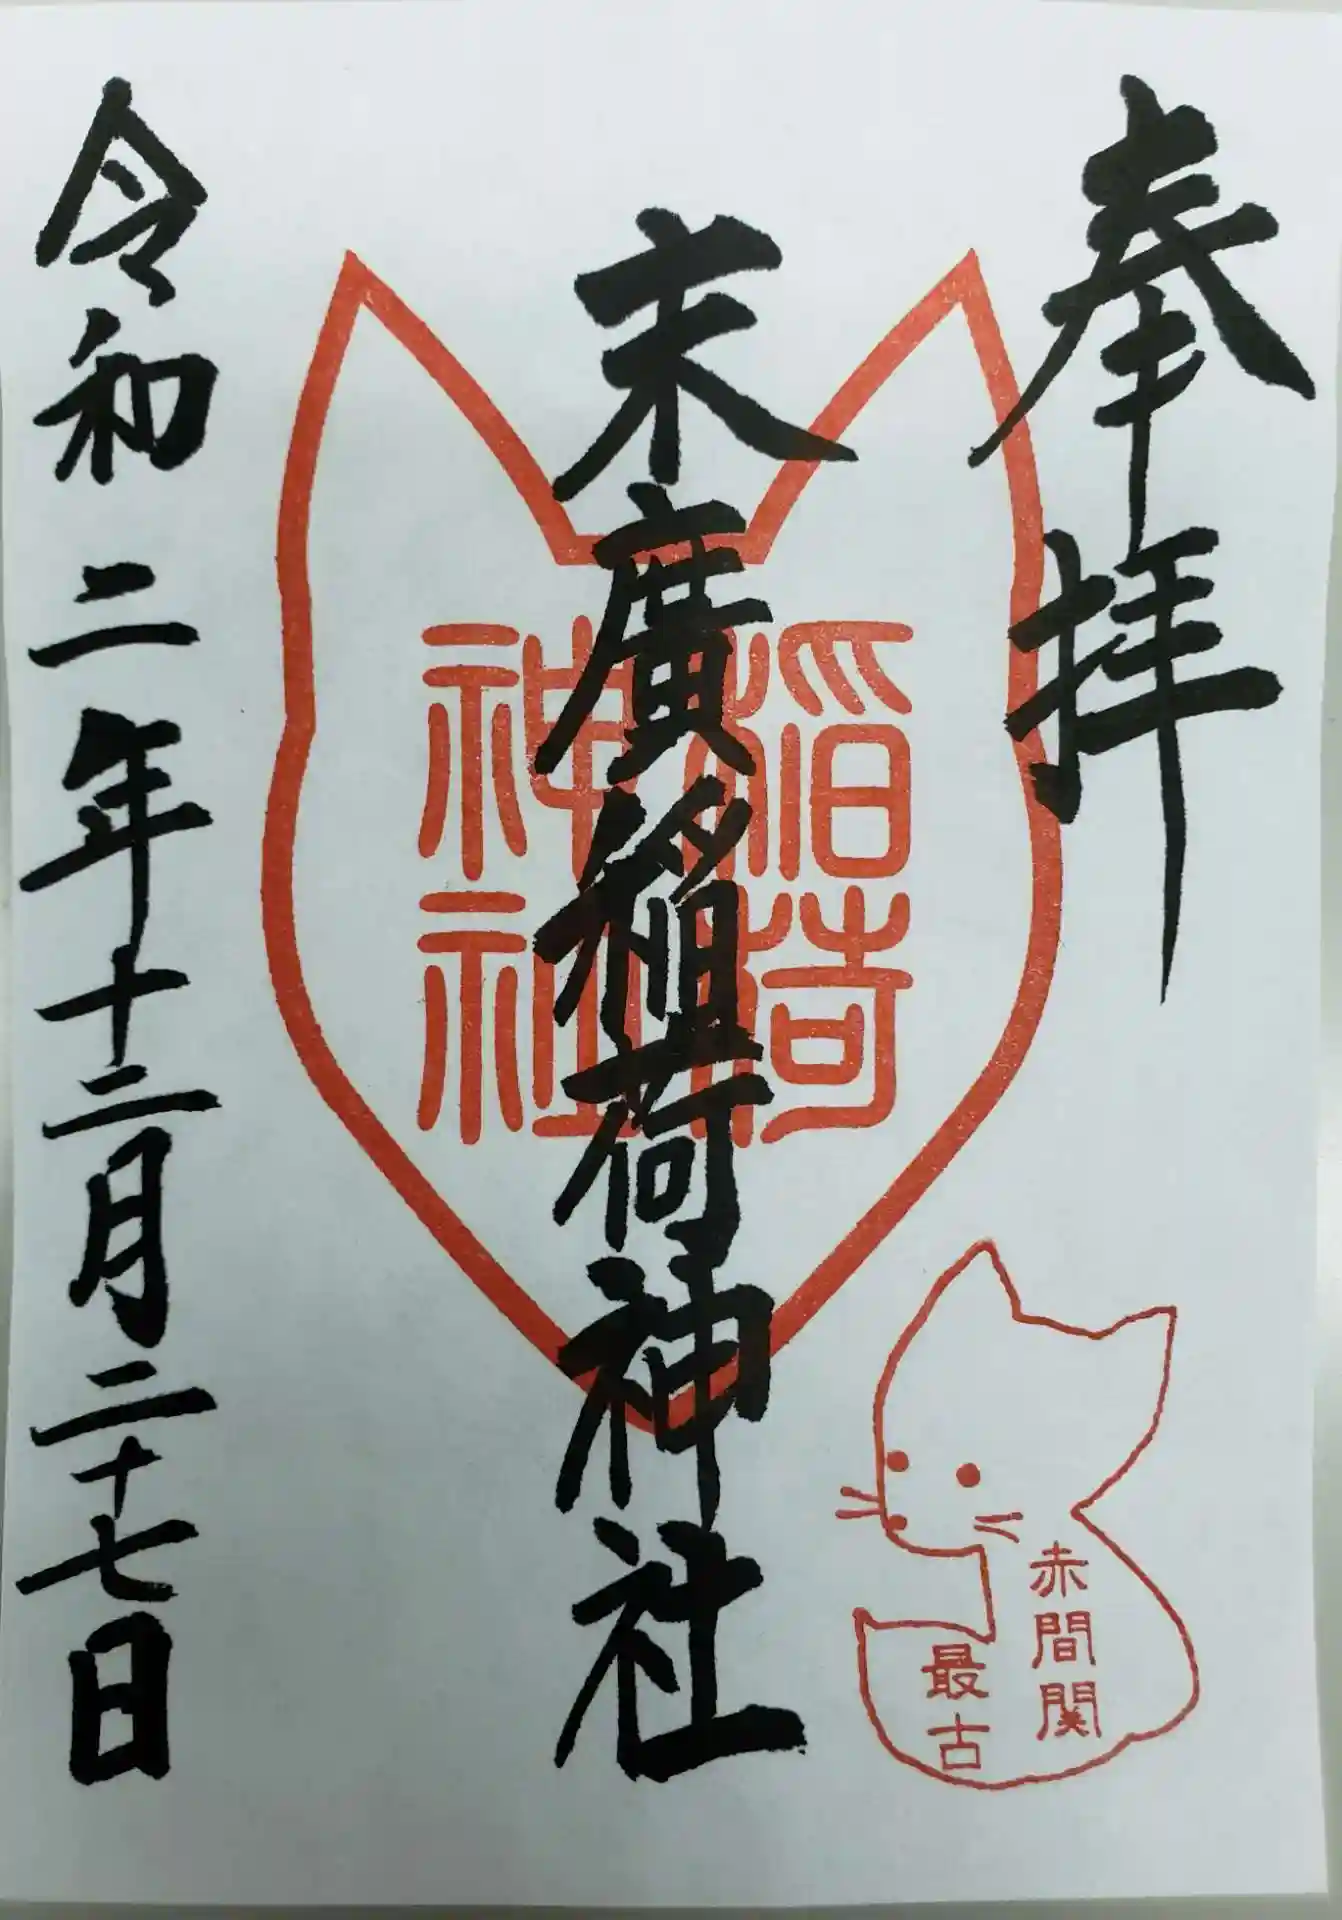 奉拝
末廣稲荷神社
令和二年十二月二十七日
稲荷
神社
赤間関
最古